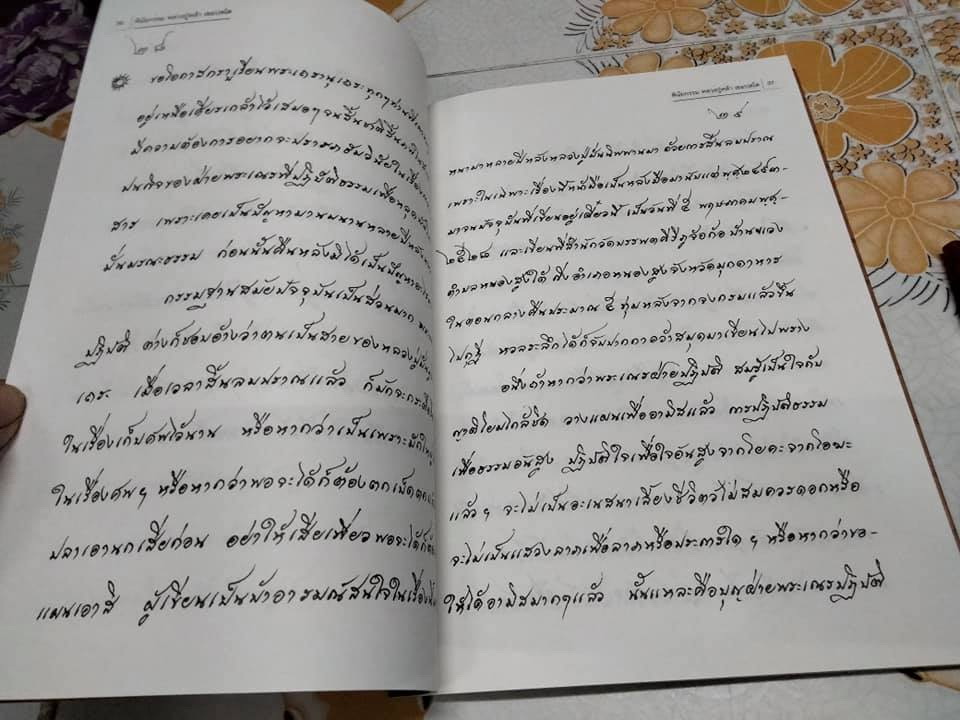 พินัยกรรม หลวงปู่หล้า เขมปตฺโต
๒๘
ขอโอกาสกราบเรียนพระเถรานุเถระทุกๆท่าน
อยู่เหนือเศียรเกล้าไว้เสมอๆจน
มีความต้องการอยากจะปรารภ
ปนกิจของฝ่ายพระเณรที่ปฏิบัติธรรมเพื่อหลุด
สาร เพราะเคยเป็นปัญหามานมนานหลายปี
นั่นมรณะธรรม ก่อนนั้นคืนหลังมิได้เป็นปัญหา
กรรมฐานสมัยปัจจุบันเป็นส่วนมาก
ปฏิปติ ต่างก็ชอบอ้างว่าตนเป็นสายของหลวงปู่มั่น
เถระ เมื่อเวลาสิ้นลมปราณแล้ว ก็มักจะ
ในเรื่องเก็บศพไว้นาน หรือหากว่าเป็นเพราะมัก
ในเรื่องศพๆ หรือหากว่าพอจะได้ก็ต้องตกเบ็ด
ปลาเอานกเสียก่อน อย่าให้เสียเพี่ยวพอจะได้ก็
แผนเอาสิ ผู้เขียนเป็นบ้าอารมณ์สนใจในเรื่อง
พินัยกรรม หลวงปู่หล้า เขมปตฺโต
๒๙
หนามาหลายปีหลังหลวงปู่มั่นนิพพานมา ด้วยการสิ้นลมปราณ
เพราะในเฉพาะเรื่องมีหนังสือเป็นหลังมือมานับแต่ พ.ศ.๒๔๕๓-
มาจนปัจจุบันที่เขียนอยู่เดี๋ยวนี้ เป็นวันที่ ๕ พฤษภาคมพ.ศ.-
๒๕๒๘ และเขียนที่สำนักวัดบรรพตคีรีภูจ้อก้อ บ้านแวง
ตำบลหนองสูงใต้ กิ่งอำเภอหนองสูงจังหวัดมุกดาหาร
ในตอนกลางคืนประมาณ ๕ ทุ่มหลังจากจงกรมแล้วขึ้น
ไปกุฏี หวลระลึกได้ก็จับปากกาคว้าสมุดมาเขียนไปพราง
อนึ่งถ้าหากว่าพระเณรฝ่ายปฏิปติ สมรู้เป็นใจกับ
ญาติโยมใกล้ชิด วางแผนเพื่ออามิสแล้ว การปฏิบัติธรรม
เพื่อธรรมอันสูง ปฏิบัติใจเพื่อใจอันสูงจากโยคะจากโอฆะ
แล้วๆ จะไม่เป็นอะเนสนาเลี้ยงชีวิตวไม่สมควรดอกหรือ
จะไม่เป็นแสวงลาภเพื่อลาภหรือประการใด ๆ หรือหากว่าขอ-
ให้ได้อามิสมากๆแล้ว นั้นแหละคือบุญฝ่ายพระเณรปฏิปติ